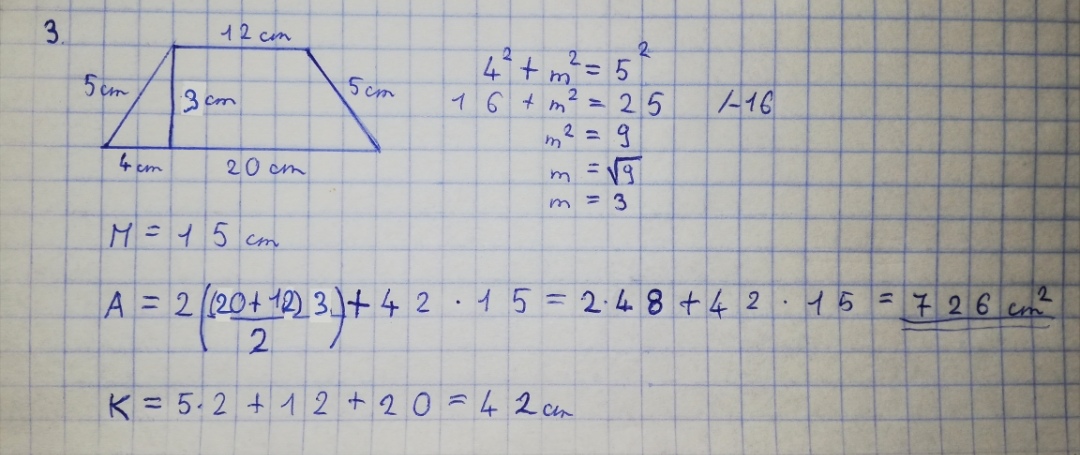 3.
12 cm
5 cm
3 cm
5 cm
4 cm
20 cm
4² + m² = 5²
16 + m² = 25 /-16
m² = 9
m = √9
m = 3
M = 15 cm
A = 2((20+12)3/2) + 42 · 15 = 2·48 + 42 · 15 = 726 cm²
K = 5·2 + 12 + 20 = 42 cm